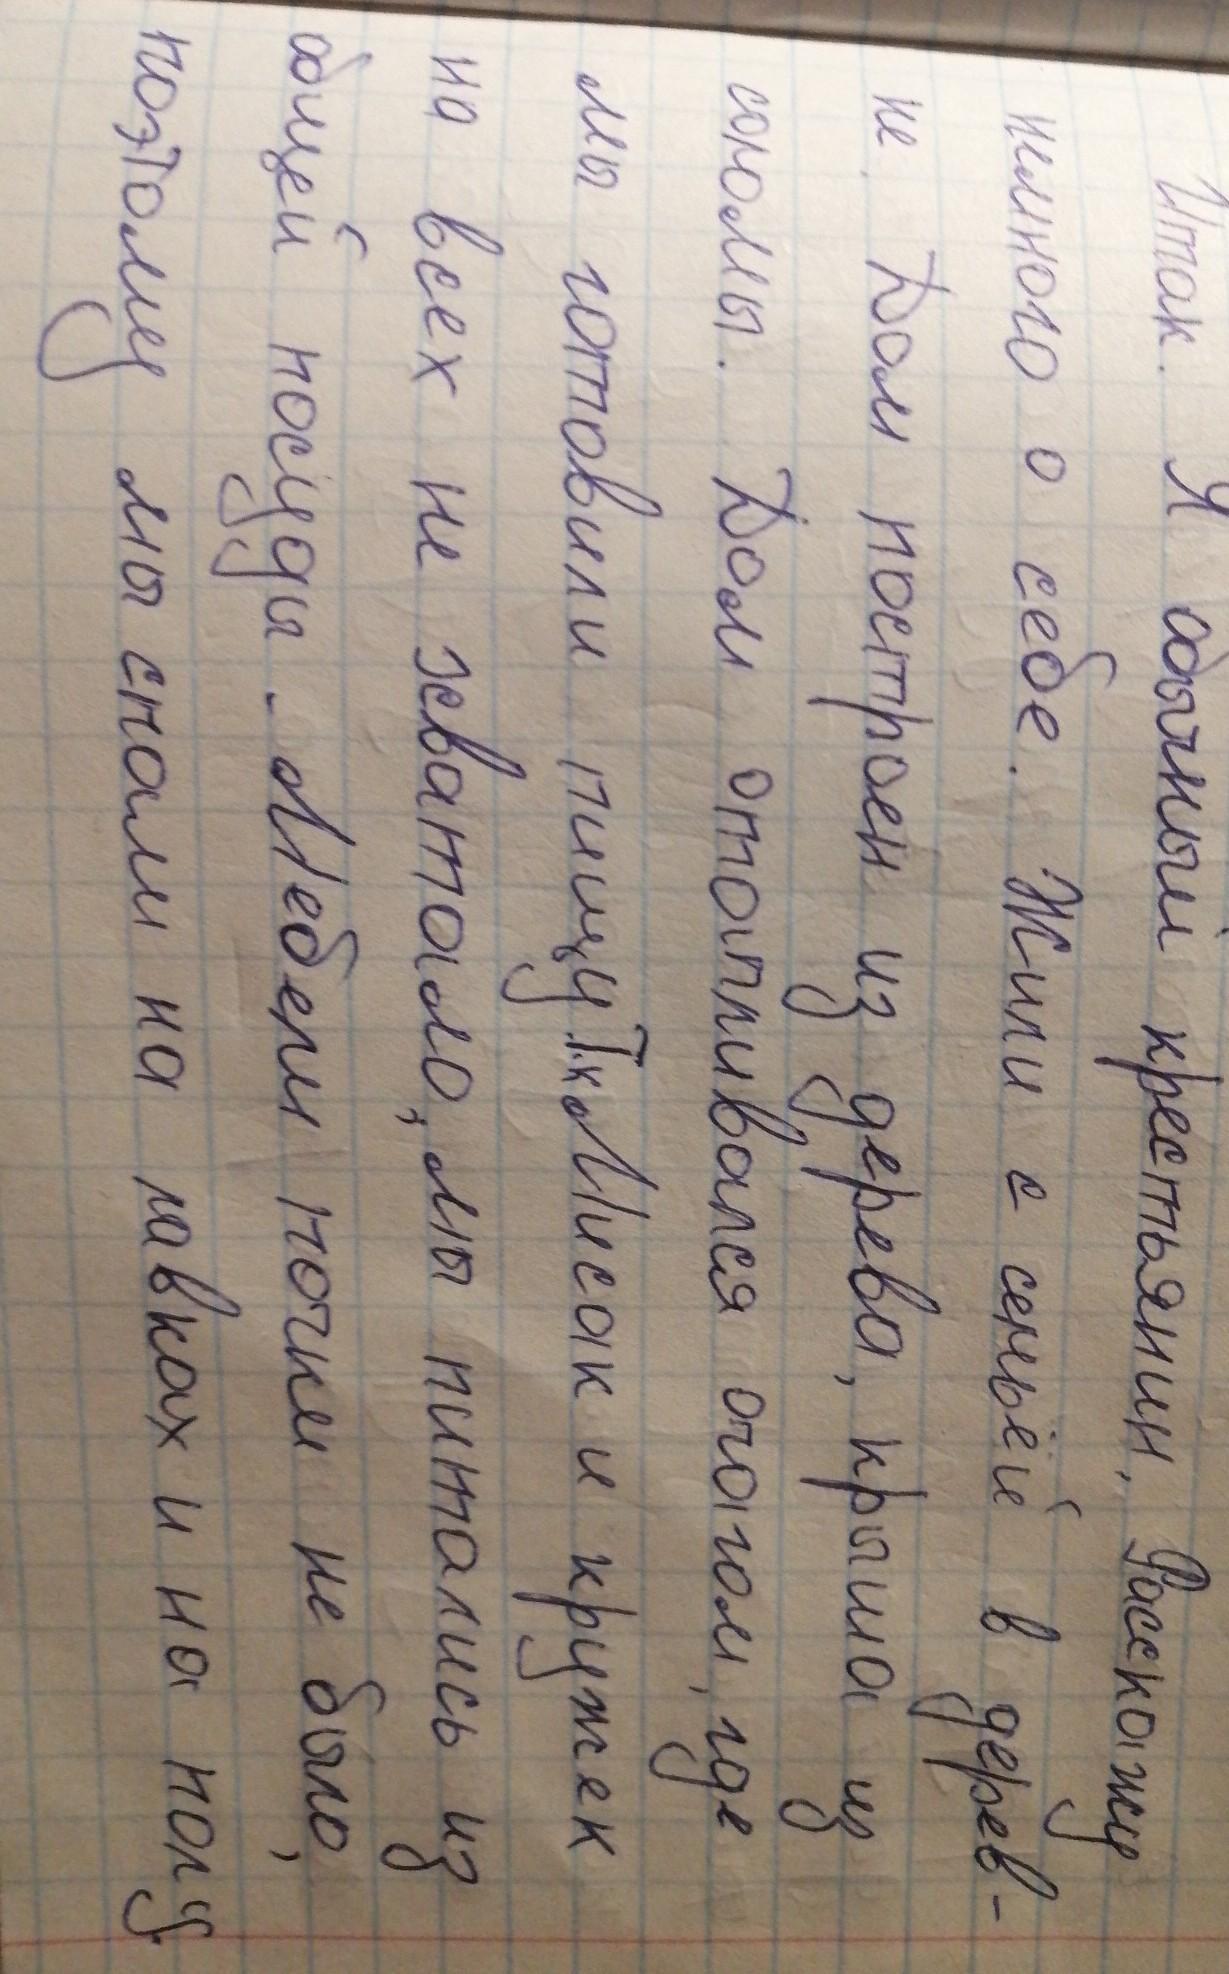 Итак. Я обычный крестьянин, Расскажу
немного о себе. Жили с семьёй в дерев-
не. Дом построен из дерева, крыша из
соломы. Дом отопливался очагом, где
мы готовили пищу. Т.к Мисок и кружек
на всех не хватало, мы питались из
общей посуды. Мебели почти не было,
поэтому мы спали на лавках и на полу